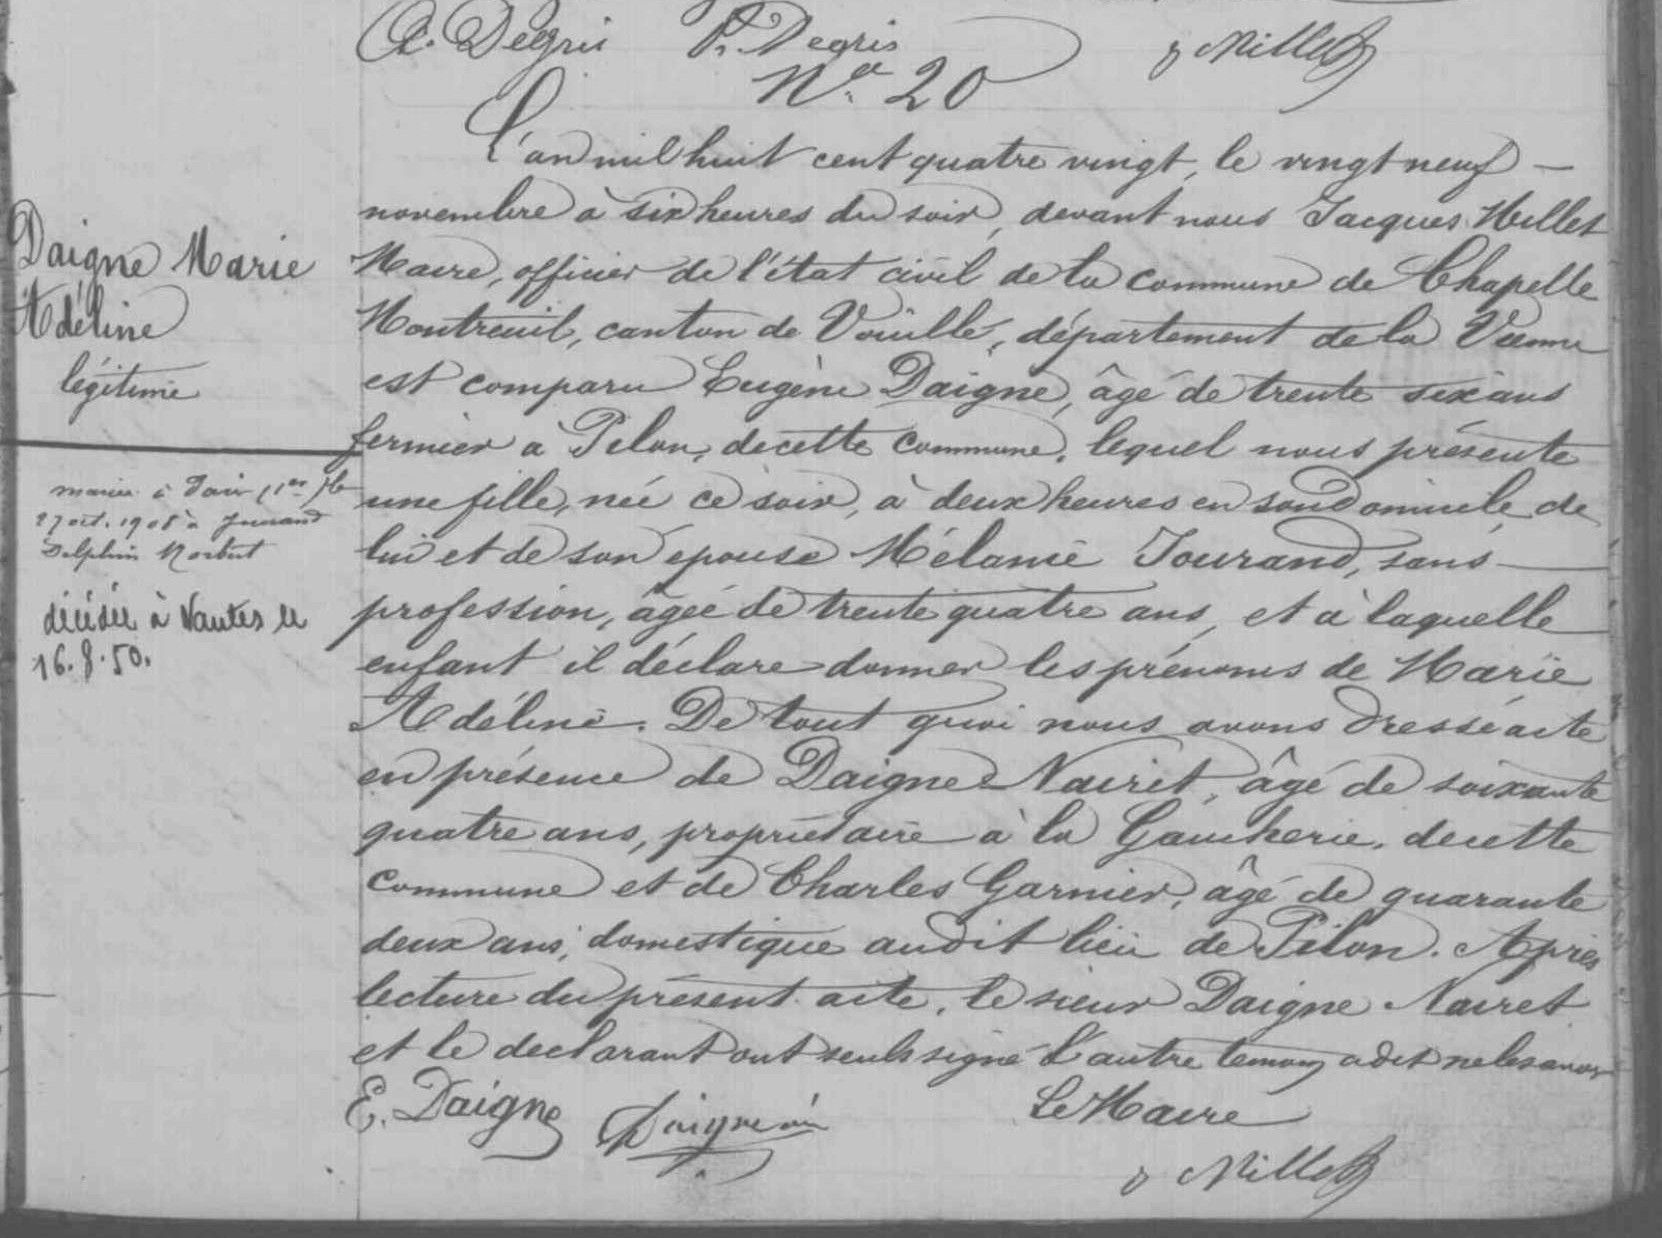 P. Degris
Millet
N° 20
L'an mil huit cent quatre vingt, le vingt neuf —
novembre à six heures du soir, devant nous Jacques Millet
Maire, officier de l'état civil de la commune de Chapelle
Montreuil, canton de Vouillé, département de la Vienne
est comparu Eugène Daigne, âgé de trente six ans
fermier a Pilon, de cette commune, lequel nous présente
une fille, née ce soir, à deux heures en son domicile, de
lui et de son épouse Mélanie Jourand, sans —
profession, âgée de trente quatre ans, et à laquelle
enfant il déclare donner les prénoms de Marie
Adéline. De tout quoi nous avons dressé acte
en présence de Daigne Nairet, âgé de soixante
quatre ans, propriétaire à la Gaucherie, de cette
commune et de Charles Garnier, âgé de quarante
deux ans, domestique audit lieu de Pilon. Après
lecture du présent acte, le sieur Daigne Nairet
et le declarant ont seuls signé l'autre temoin a dit ne le savoir
E. Daigne
Le Maire
Millet
Daigne Marie
Adéline
légitime
mariée à
27 oct. 1908 à
Delphin Norbert
décédée à Nantes le
16.8.50.